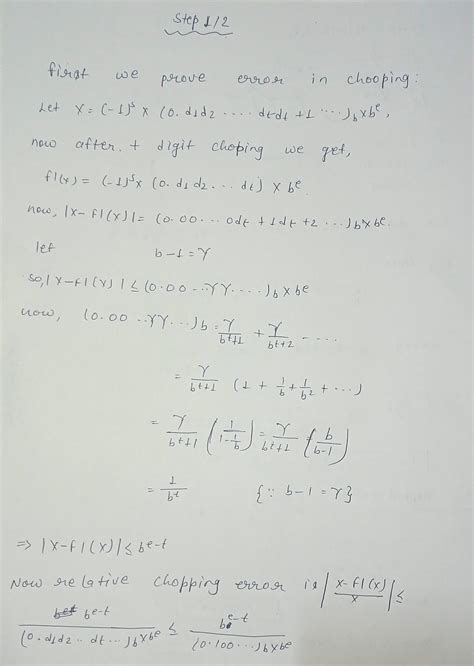 Step 1/2
first we prove error in chooping:
Let X = (-1)^s × (0. d1 d2 ..... dt dt+1 ....)_b × b^e,
now after t digit choping we get,
fl(x) = (-1)^s × (0. d1 d2 ... dt) × b^e
now, |x-fl(x)| = (0.00...0dt+1dt+2 ....)_b × b^e
let b-1 = γ
so, |x-fl(x)| ≤ (0.00...γγ....)_b × b^e
now, (0.00..γγ...)_b = γ/b^t+1 + γ/b^t+2 ----
= γ/b^t+1 (1 + 1/b + 1/b^2 + ...)
= γ/b^t+1 (1/(1-1/b)) = γ/b^t+1 (b/(b-1))
= 1/b^t {∵ b-1 = γ}
⇒ |x-fl(x)| ≤ b^e-t
Now relative chopping error is |(x-fl(x))/x| ≤
b^e-t/((0.d1d2.. dt...)_b × b^e) ≤ b^e-t/((0.100...)_b × b^e)